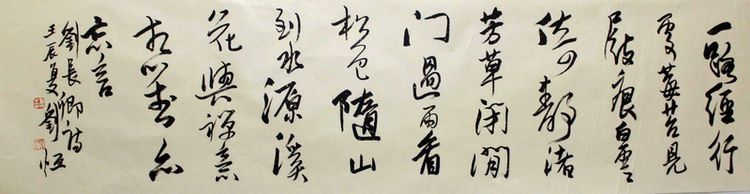 一路經行
處莓苔見
屐痕白雲
依静渚
芳草閉閒
門過雨看
松色隨山
到水源溪
花與禪意
相對亦
忘言
劉長卿詩
壬辰夏劉恒